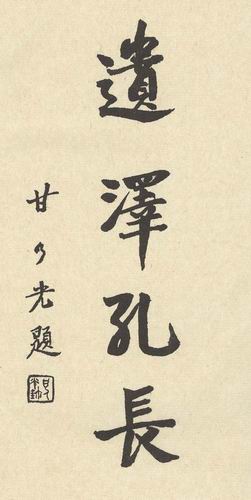 遺澤孔長
甘乃光題